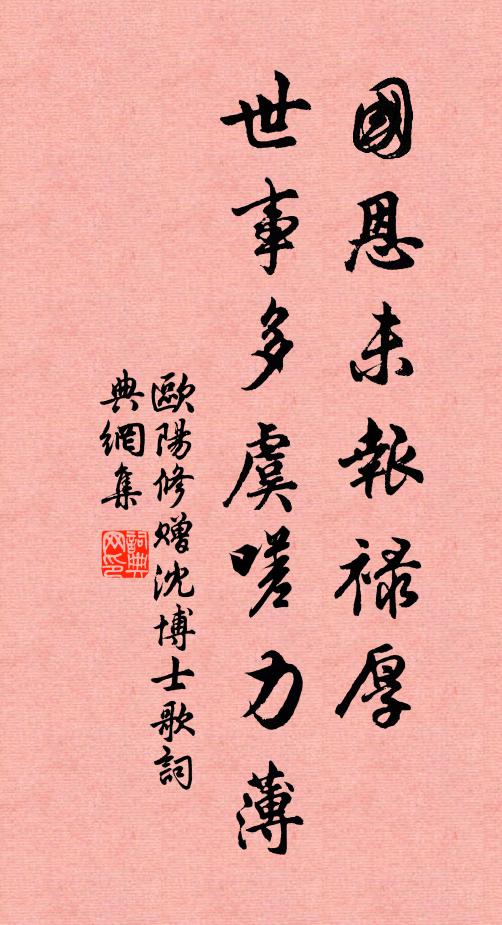 國恩未報禄厚
世事多虞嗟力薄
歐陽修贈沈博士歌詞
典網集
詞典
网印